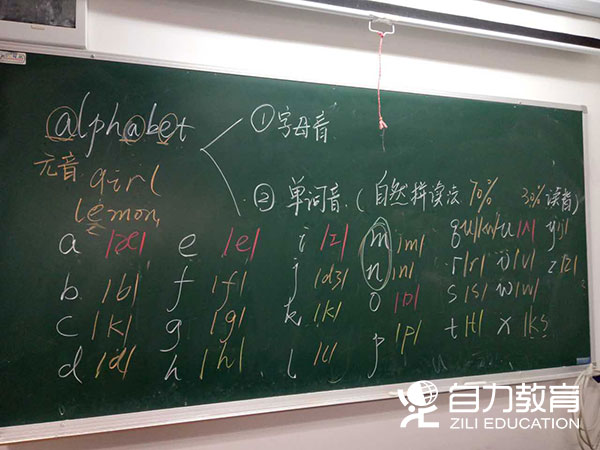 alphabet
① 字母音
元音
girl
lemon
② 单词音 (自然拼读法 70% 30% 读音)
a /æ/ e /e/ i /ɪ/ m /m/ qu /kw/ u /ʌ/ y /j/
b /b/ f /f/ j /dʒ/ n /n/ r /r/ v /v/ z /z/
c /k/ g /g/ k /k/ o /ɒ/ s /s/ w /w/
d /d/ h /h/ l /l/ p /p/ t /t/ x /ks
自力教育
ZILI EDUCATION